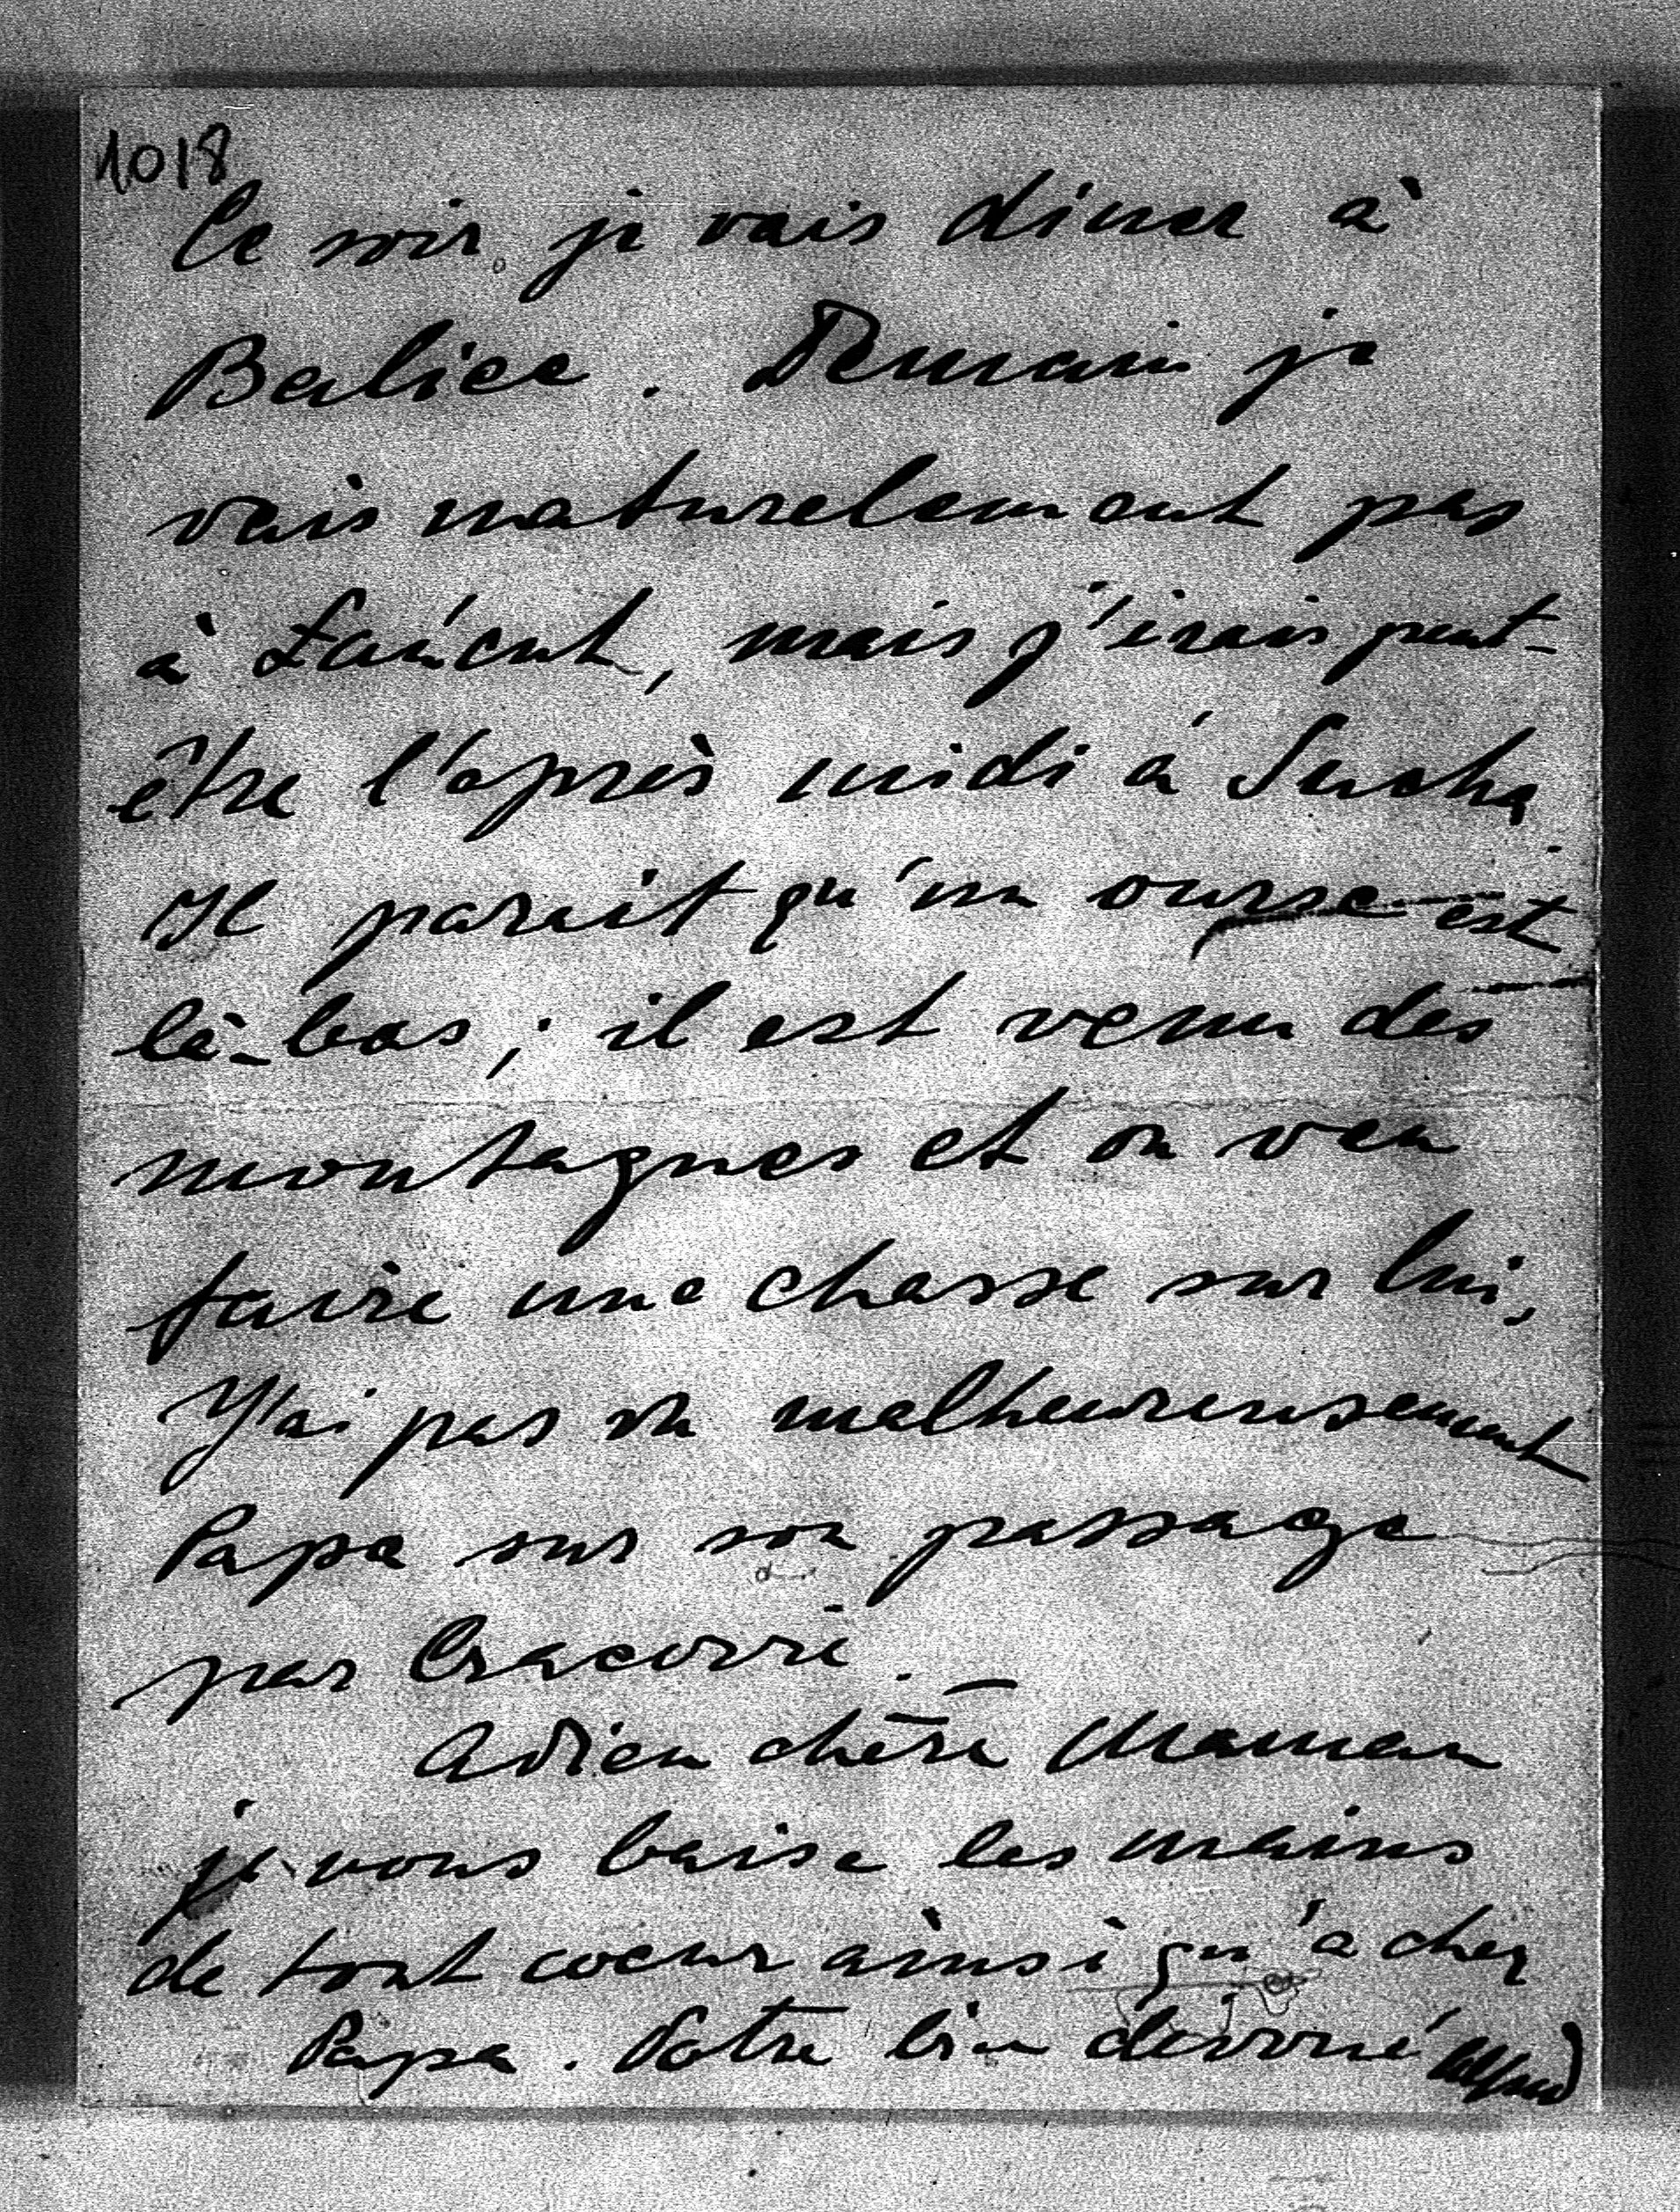 1018
Ce soir je vais diner à
Balice. Demain je
vais naturelement pas
à Łańcut, mais j'irais peut-
être l'après midi à Sucha
Il parait qu'un ourse est
là-bas; il est venu des
montagnes et on veu
faire une chasse sur lui,
J'ai pas vu malheureusement
Papa sur son passage
par Cracovie. —
Adieu chère Maman
je vous baise les mains
de tout coeur ainsi qu'à cher
Papa. Votre bien devoué Alfred